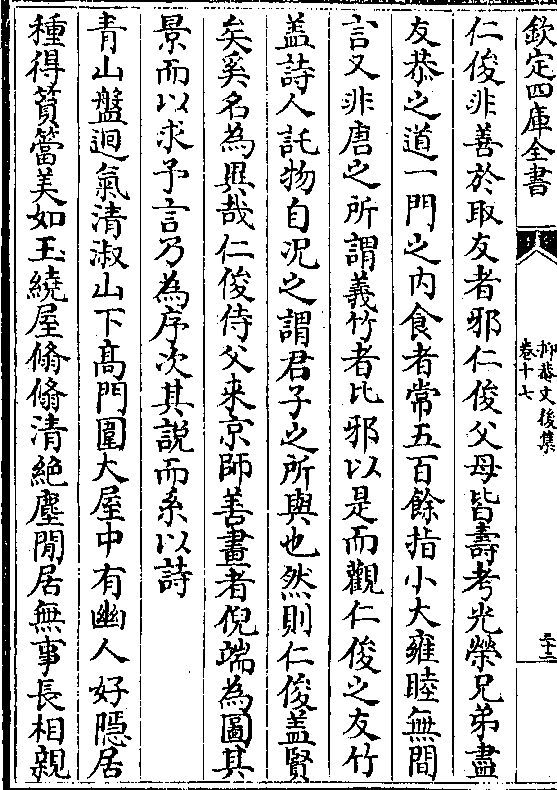 欽定四庫全書
抑菴文後集
卷十七
三十二
仁俊非善於取友者邪仁俊父母皆壽考光榮兄弟盡
友恭之道一門之内食者常五百餘指小大雍睦無間
言又非唐之所謂義竹者比邪以是而觀仁俊之友竹
盖詩人託物自况之謂君子之所與也然則仁俊盖賢
矣奚名為異哉仁俊侍父来京師善畫者倪端為圖其
景而以求予言乃為序次其説而系以詩
青山盤迴氣清淑山下髙門圍大屋中有幽人好隱居
種得篔簹美如玉繞屋翛翛清絶塵閒居無事長相親